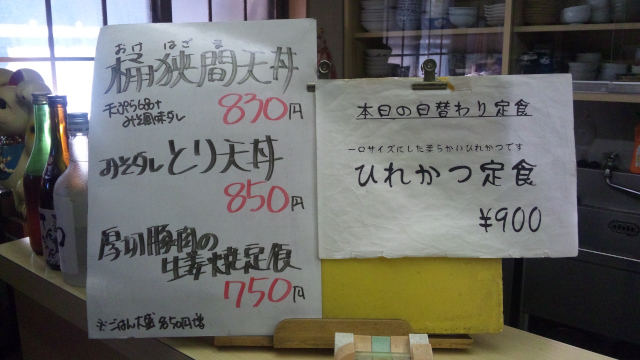 おけ はざま
桶狭間天丼
天ぷら6ヶ+
みそ風味ダレ
830円
みそダレとり天丼
850円
厚切豚肉の
生姜焼定食
750円
※ごはん大盛
本日の日替わり定食
一口サイズにした柔らかいひれかつです
ひれかつ定食
¥900